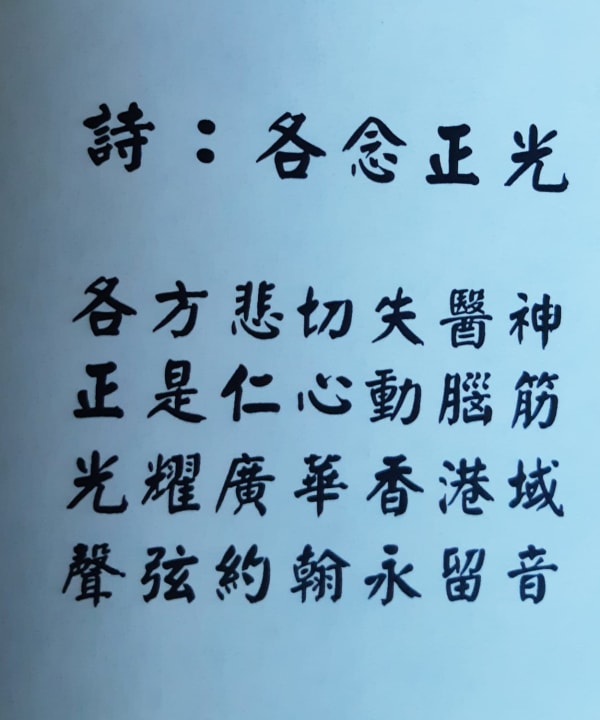 詩：各念正光
各方悲切失醫神
正是仁心動腦筋
光耀廣華香港域
聲弦約翰永留音